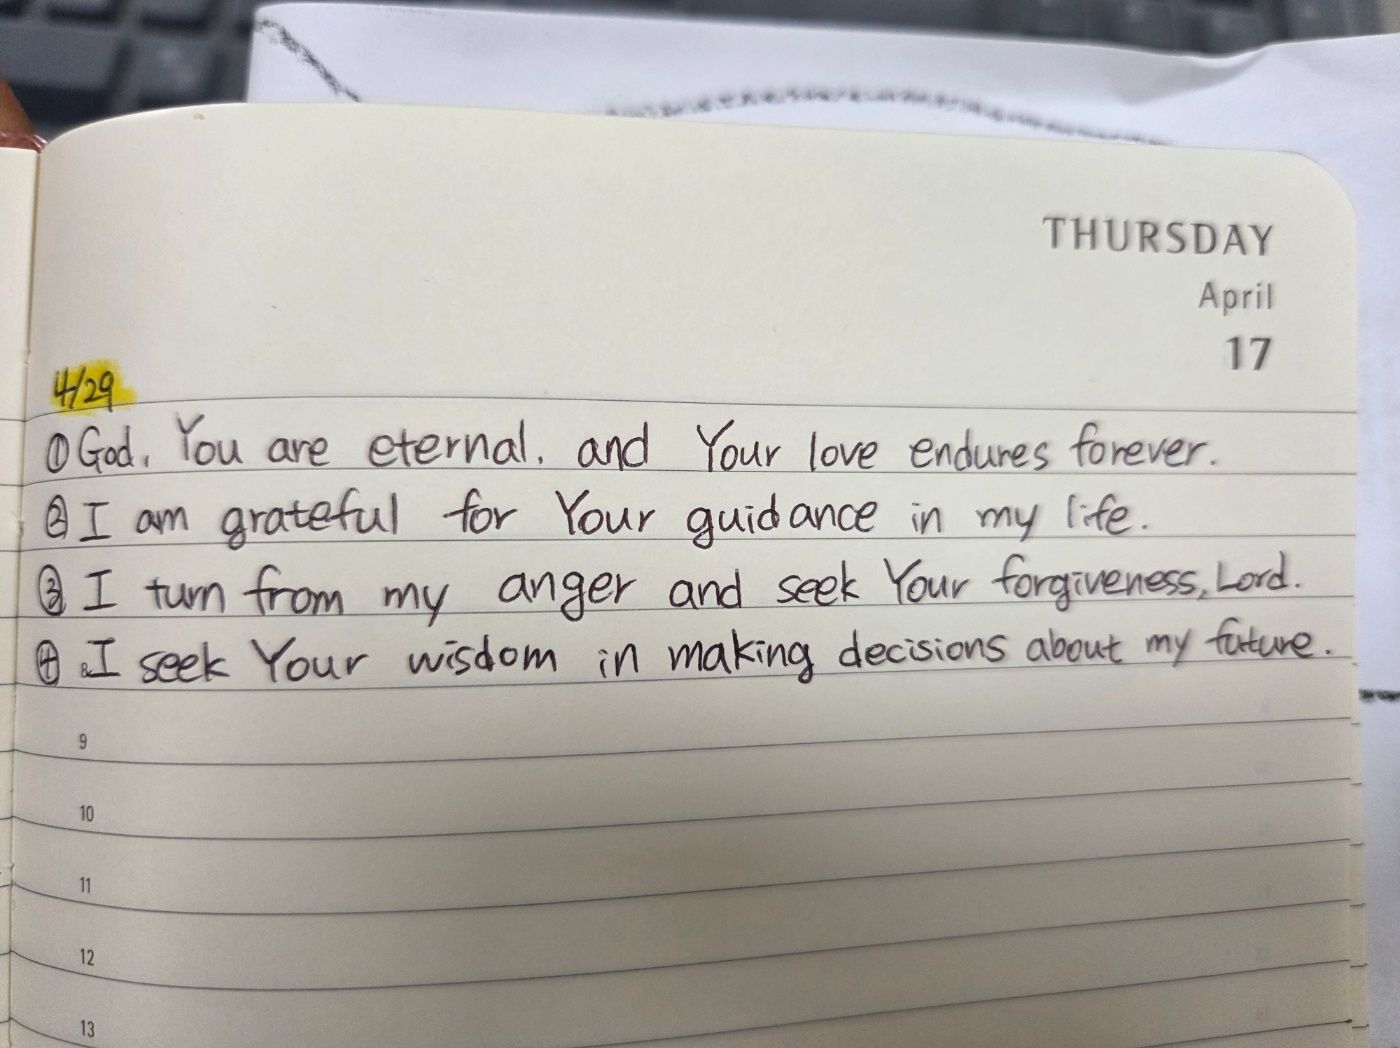 THURSDAY
April
17
4/29
① God, You are eternal, and Your love endures forever.
② I am grateful for Your guidance in my life.
③ I turn from my anger and seek Your forgiveness, Lord.
④ I seek Your wisdom in making decisions about my future.
9
10
11
12
13